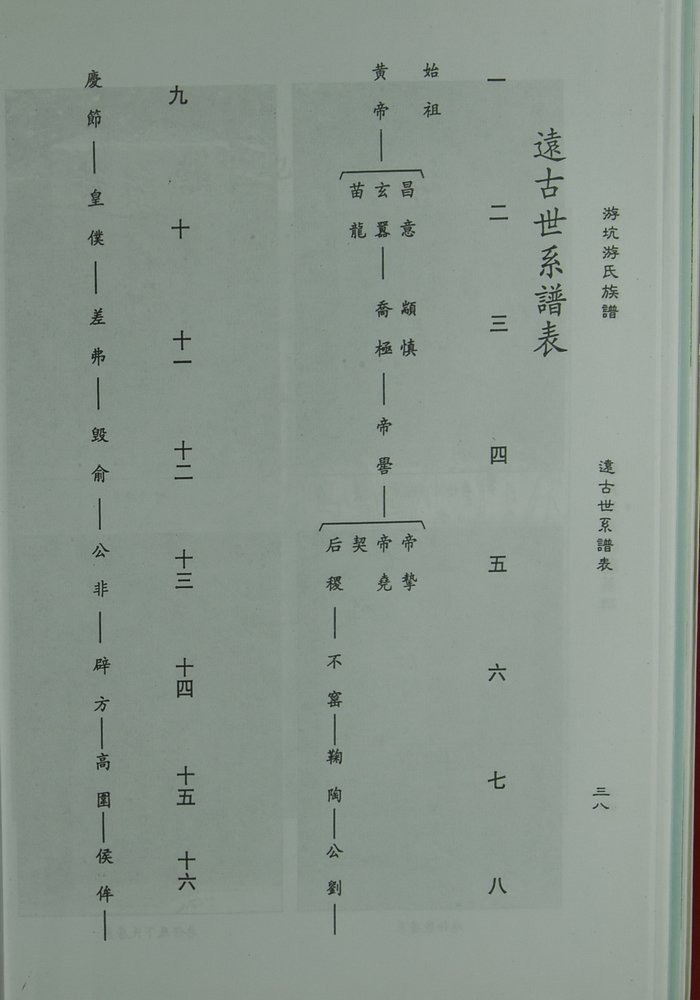 游坑游氏族譜
遠古世系譜表
三八
遠古世系譜表
一
二
三
四
五
六
七
八
始祖
黃帝
昌意
玄囂
苗龍
顓慎
喬極
帝嚳
帝摯
帝堯
契
后稷
不窋
鞠陶
公劉
九
十
十一
十二
十三
十四
十五
十六
慶節
皇僕
差弗
毀俞
公非
辟方
高圉
侯侔